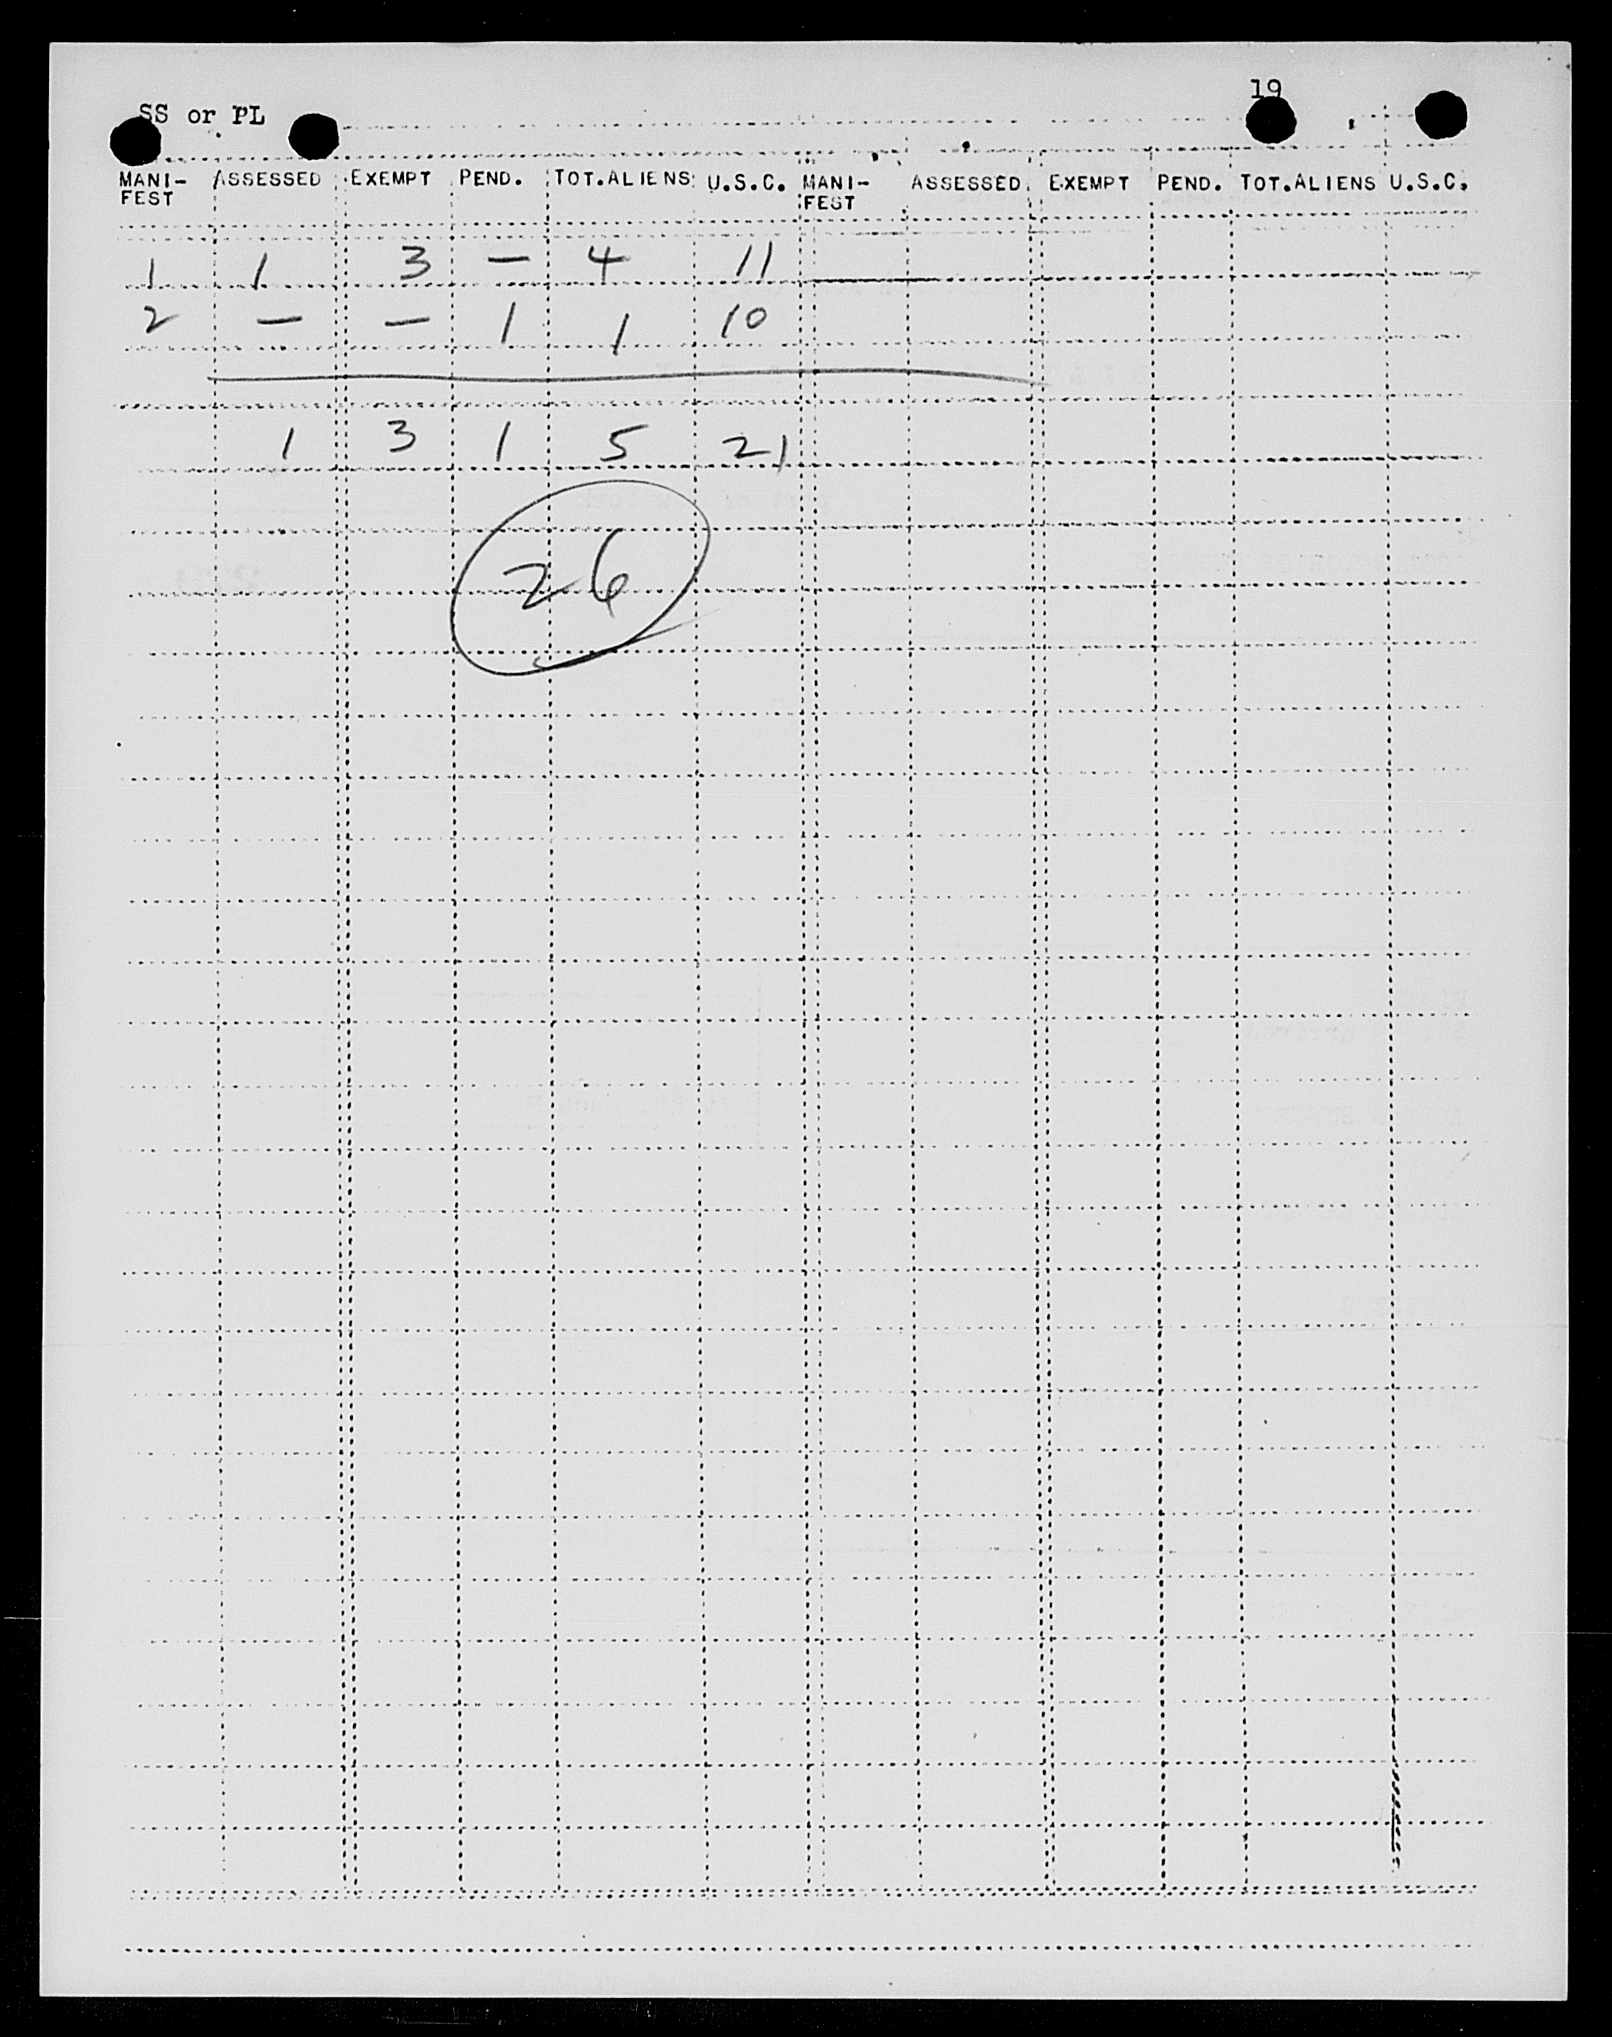 19
SS or PL
MANI- ASSESSED EXEMPT PEND. TOT.ALIENS U.S.C. MANI- ASSESSED EXEMPT PEND. TOT.ALIENS U.S.C.
FEST FEST
1 1 3 — 4 11
2 — — 1 1 10
1 3 1 5 21
26